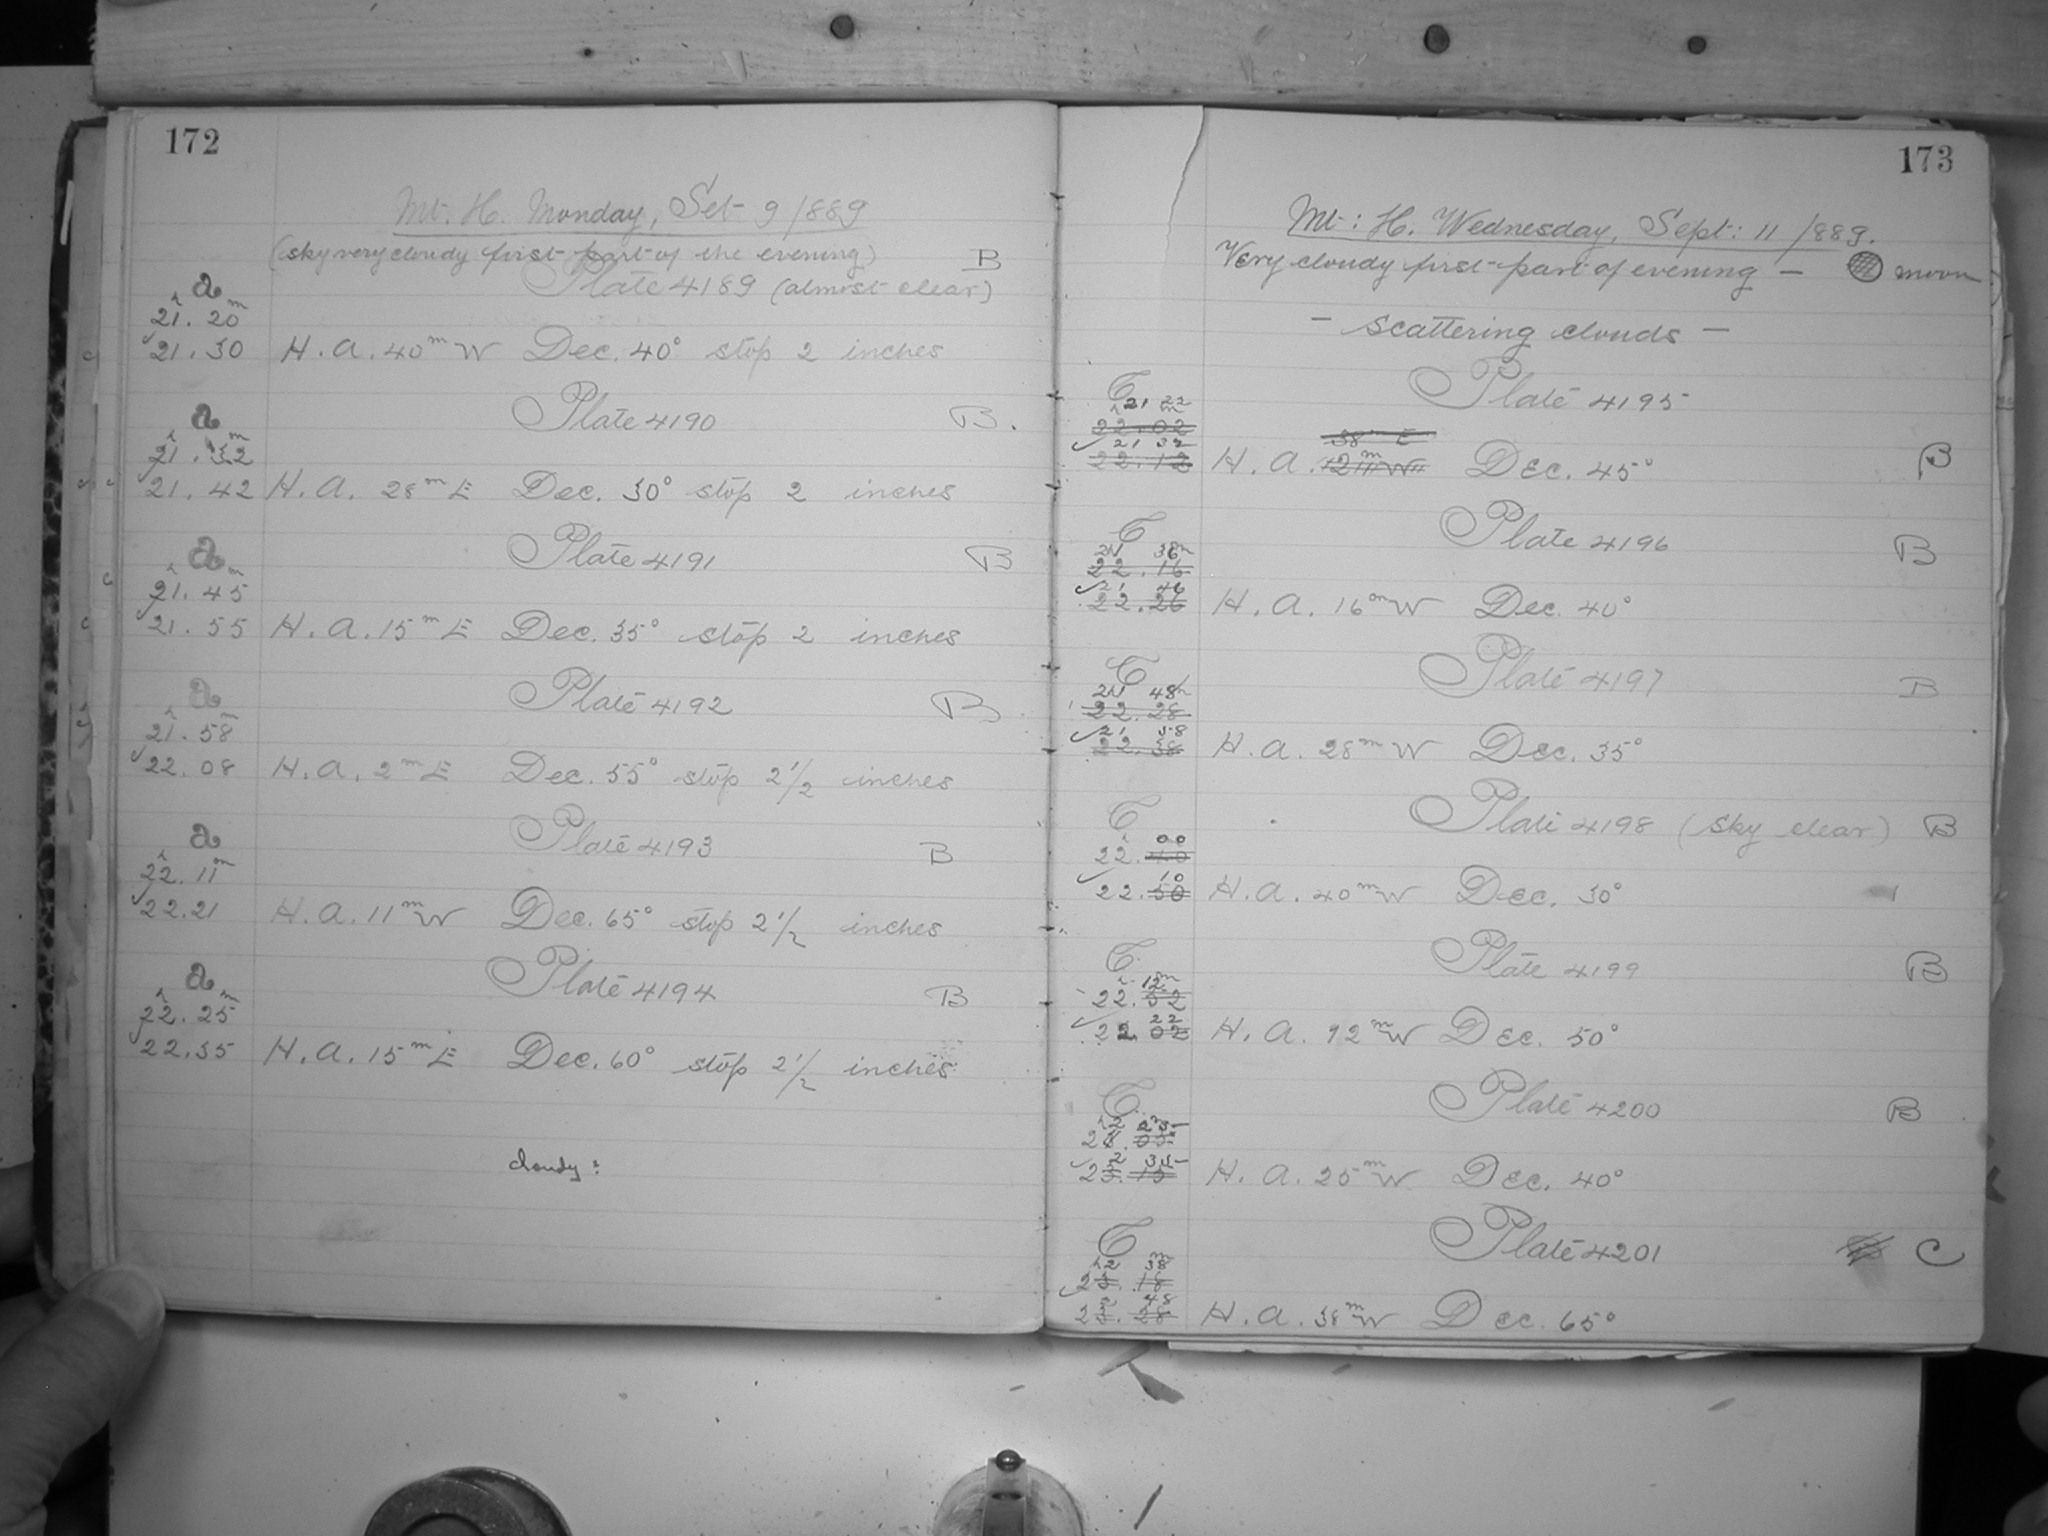 172
Mt. H. Monday, Set 9/889
(sky very cloudy first part of the evening) B
Plate 4189 (almost clear)
a
21.20
21.30 H. A. 40m W Dec. 40° stop 2 inches
a Plate 4190 B.
21.32
21.42 H. A. 28m E Dec. 30° stop 2 inches
a Plate 4191 B
21.45
21.55 H. A. 15m E Dec. 35° stop 2 inches
a Plate 4192 B
21.58
22.08 H. A. 2m E Dec. 55° stop 2 1/2 inches
a Plate 4193 B
22.11
22.21 H. A. 11m W Dec. 65° stop 2 1/2 inches
a Plate 4194 B
22.25
22.35 H. A. 15m E Dec. 60° stop 2 1/2 inches
cloudy:
173
Mt: H. Wednesday, Sept: 11/889.
Very cloudy first part of evening — moon
— scattering clouds —
Plate 4195
21 22
22.02
21 32
22.12 H. A. 12m W Dec. 45° B
38m E
Plate 4196 B
21 36
22.16
21 46
22.26 H. A. 16m W Dec. 40°
Plate 4197 B
21 48
22.28
21 58
22.38 H. A. 28m W Dec. 35°
Plate 4198 (sky clear) B
00
22.40
10
22.50 H. A. 40m W Dec. 30°
Plate 4199 B
12
22.52
22
22.02 H. A. 12m W Dec. 50°
Plate 4200 B
2 25
23.05
2 35
23.15 H. A. 25m W Dec. 40°
Plate 4201 C
2 38
23.18
2 48
23.28 H. A. 38m W Dec. 65°